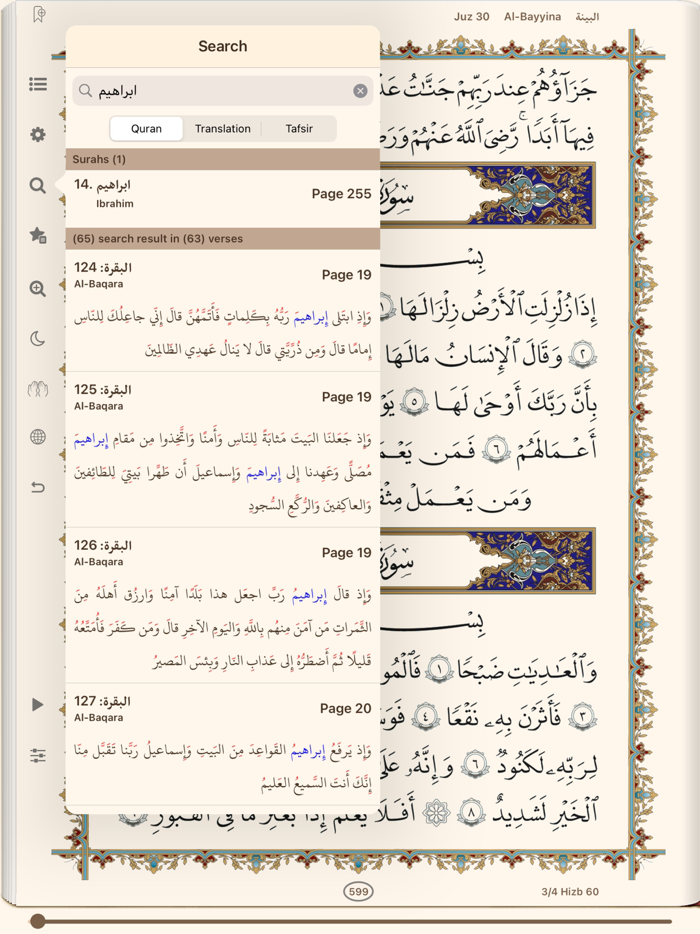 Juz 30 Al-Bayyina البينة
Search
ابراهيم
Quran Translation Tafsir
Surahs (1)
14. ابراهيم
Ibrahim
Page 255
(65) search result in (63) verses
البقرة: 124
Al-Baqara
Page 19
وَإِذِ ابتَلى إِبراهيمَ رَبُّهُ بِكَلِماتٍ فَأَتَمَّهُنَّ قالَ إِنّي جاعِلُكَ لِلنّاسِ
إِمامًا قالَ وَمِن ذُرِّيَّتي قالَ لا يَنالُ عَهدِي الظّالِمينَ
البقرة: 125
Al-Baqara
Page 19
وَإِذ جَعَلنَا البَيتَ مَثابَةً لِلنّاسِ وَأَمنًا وَاتَّخِذوا مِن مَقامِ إِبراهيمَ
مُصَلًّى وَعَهِدنا إِلى إِبراهيمَ وَإِسماعيلَ أَن طَهِّرا بَيتِيَ لِلطّائِفينَ
وَالعاكِفينَ وَالرُّكَّعِ السُّجودِ
البقرة: 126
Al-Baqara
Page 19
وَإِذ قالَ إِبراهيمُ رَبِّ اجعَل هذا بَلَدًا آمِنًا وَارزُق أَهلَهُ مِنَ
الثَّمَراتِ مَن آمَنَ مِنهُم بِاللَّهِ وَاليَومِ الآخِرِ قالَ وَمَن كَفَرَ فَأُمَتِّعُهُ
قَليلًا ثُمَّ أَضطَرُّهُ إِلى عَذابِ النّارِ وَبِئسَ المَصيرُ
البقرة: 127
Al-Baqara
Page 20
وَإِذ يَرفَعُ إِبراهيمُ القَواعِدَ مِنَ البَيتِ وَإِسماعيلُ رَبَّنا تَقَبَّل مِنّا
إِنَّكَ أَنتَ السَّميعُ العَليمُ
جَزَآؤُهُمْ عِندَ رَبِّهِمْ جَنَّٰتُ
فِيهَآ أَبَدًا ۚ رَّضِىَ ٱللَّهُ عَنْهُمْ
إِذَا زُلْزِلَتِ ٱلْأَرْضُ زِلْزَالَهَا ١
٢ وَقَالَ ٱلْإِنسَٰنُ مَا لَهَا
بِأَنَّ رَبَّكَ أَوْحَىٰ لَهَا ٥
أَعْمَٰلَهُمْ ٦ فَمَن
وَمَن يَعْمَلْ
وَٱلْعَٰدِيَٰتِ ضَبْحًا ١
٣ فَأَثَرْنَ بِهِۦ نَقْعًا ٤
لِرَبِّهِۦ لَكَنُودٌ ٦ وَإِنَّهُۥ
ٱلْخَيْرِ لَشَدِيدٌ ٨ أَفَلَا يَعْلَمُ إِذَا بُعْثِرَ مَا فِى ٱلْقُبُورِ
599
3/4 Hizb 60